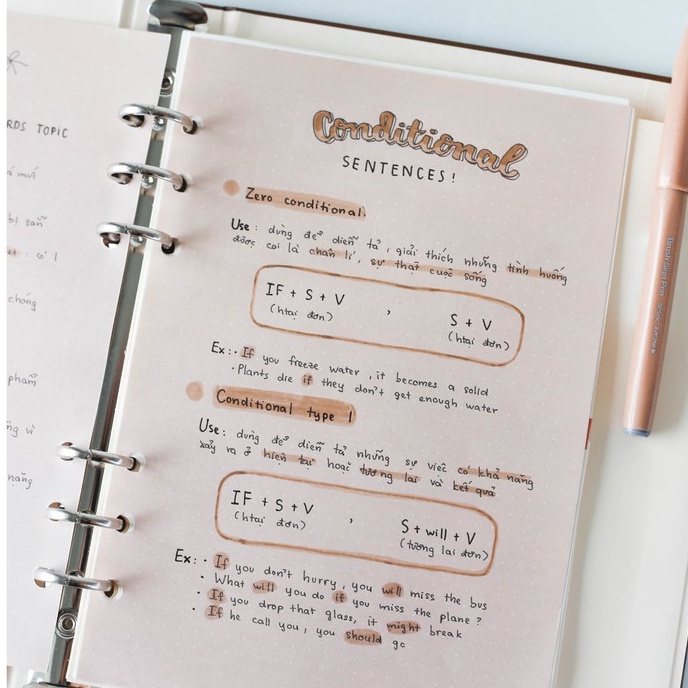 RDS TOPIC
bị sẵn
chống
phạm
ng vì
năng
Conditional
SENTENCES!
Zero conditional.
Use: dùng để diễn tả, giải thích những tình huống
được coi là chân lí, sự thật cuộc sống
IF + S + V , S + V
(htại đơn) (htại đơn)
Ex: • If you freeze water, it becomes a solid
• Plants die if they don't get enough water
Conditional type 1
Use: dùng để diễn tả những sự việc có khả năng
xảy ra ở hiện tại hoặc tương lai và kết quả
IF + S + V , S + will + V
(htại đơn) (tương lai đơn)
Ex: • If you don't hurry, you will miss the bus
• What will you do if you miss the plane?
• If you drop that glass, it might break
• If he call you, you should go
Brush Sign Pen